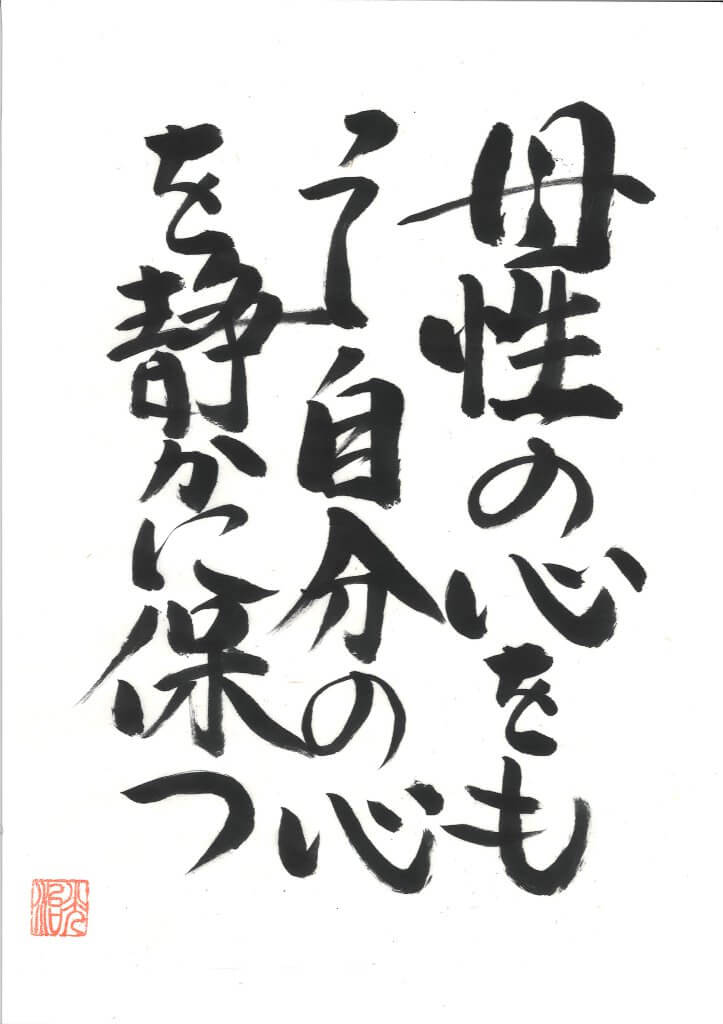 母性の心をも
自分の心
を静かに保つ